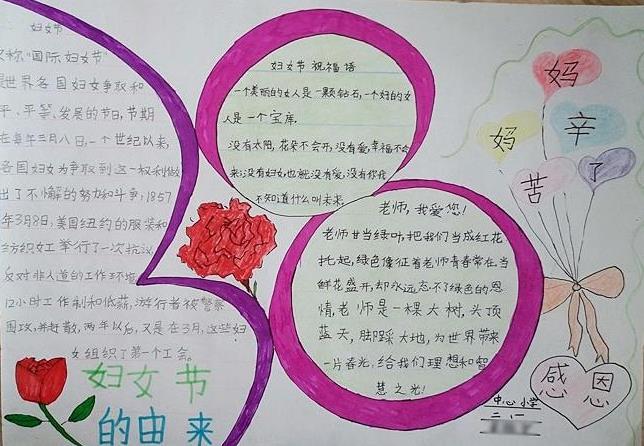 妇女节
又称"国际妇女节"
是世界各国妇女争取和
平、平等、发展的节日,节期
在每年三月八日,一个世纪以来,
各国妇女为争取到这一权利做
出了不懈的努力和斗争;1857
年3月8号,美国纽约的服装和
纺织女工举行了一次抗议
反对非人道的工作环境
12小时工作制和低薪,游行者被警察
围攻,并赶散,两年以后,又是在3月,这些妇
女组织了第一个工会。
妇女节
的由来
妇女节祝福语
一个美丽的女人是一颗钻石,一个好的女
人是一个宝库。
没有太阳,花朵不会开,没有爱,幸福不会
来;没有妇女,也就没有爱,没有你我
不知道什么叫未来。
老师,我爱您!
老师甘当绿叶,把我们当成红花
托起,绿色像征着老师青春常在,当
鲜花盛开,却永远忘不了绿色的恩
情,老师是一棵大树,头顶
蓝天,脚踩大地,为世界带来
一片春光,给我们理想和智
慧之光!
妈
妈
辛
苦
了
感恩
中心小学
二、1